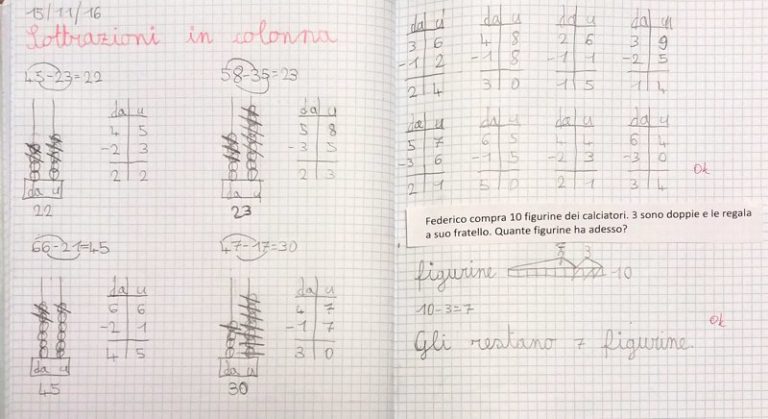 15/11/16
Sottrazioni in colonna
45-23=22
58-35=23
da u
4 5
-2 3
2 2
da u
22
da u
5 8
-3 5
2 3
da u
23
66-21=45
47-17=30
da u
6 6
-2 1
4 5
da u
45
da u
4 7
-1 7
3 0
da u
30
da u
3 6
-1 2
2 4
da u
4 8
-1 8
3 0
da u
2 6
-1 1
1 5
da u
3 9
-2 5
1 4
da u
5 7
-3 6
2 1
da u
6 5
-1 5
5 0
da u
4 4
-2 3
2 1
da u
6 4
-3 0
3 4
Ok
Federico compra 10 figurine dei calciatori. 3 sono doppie e le regala
a suo fratello. Quante figurine ha adesso?
7 3
figurine -10
10-3=7
Ok
Gli restano 7 figurine.